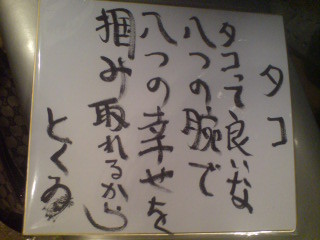 タコ
タコって良いな
八つの腕で
八つの幸せを
掴み取れるから
とくゐ